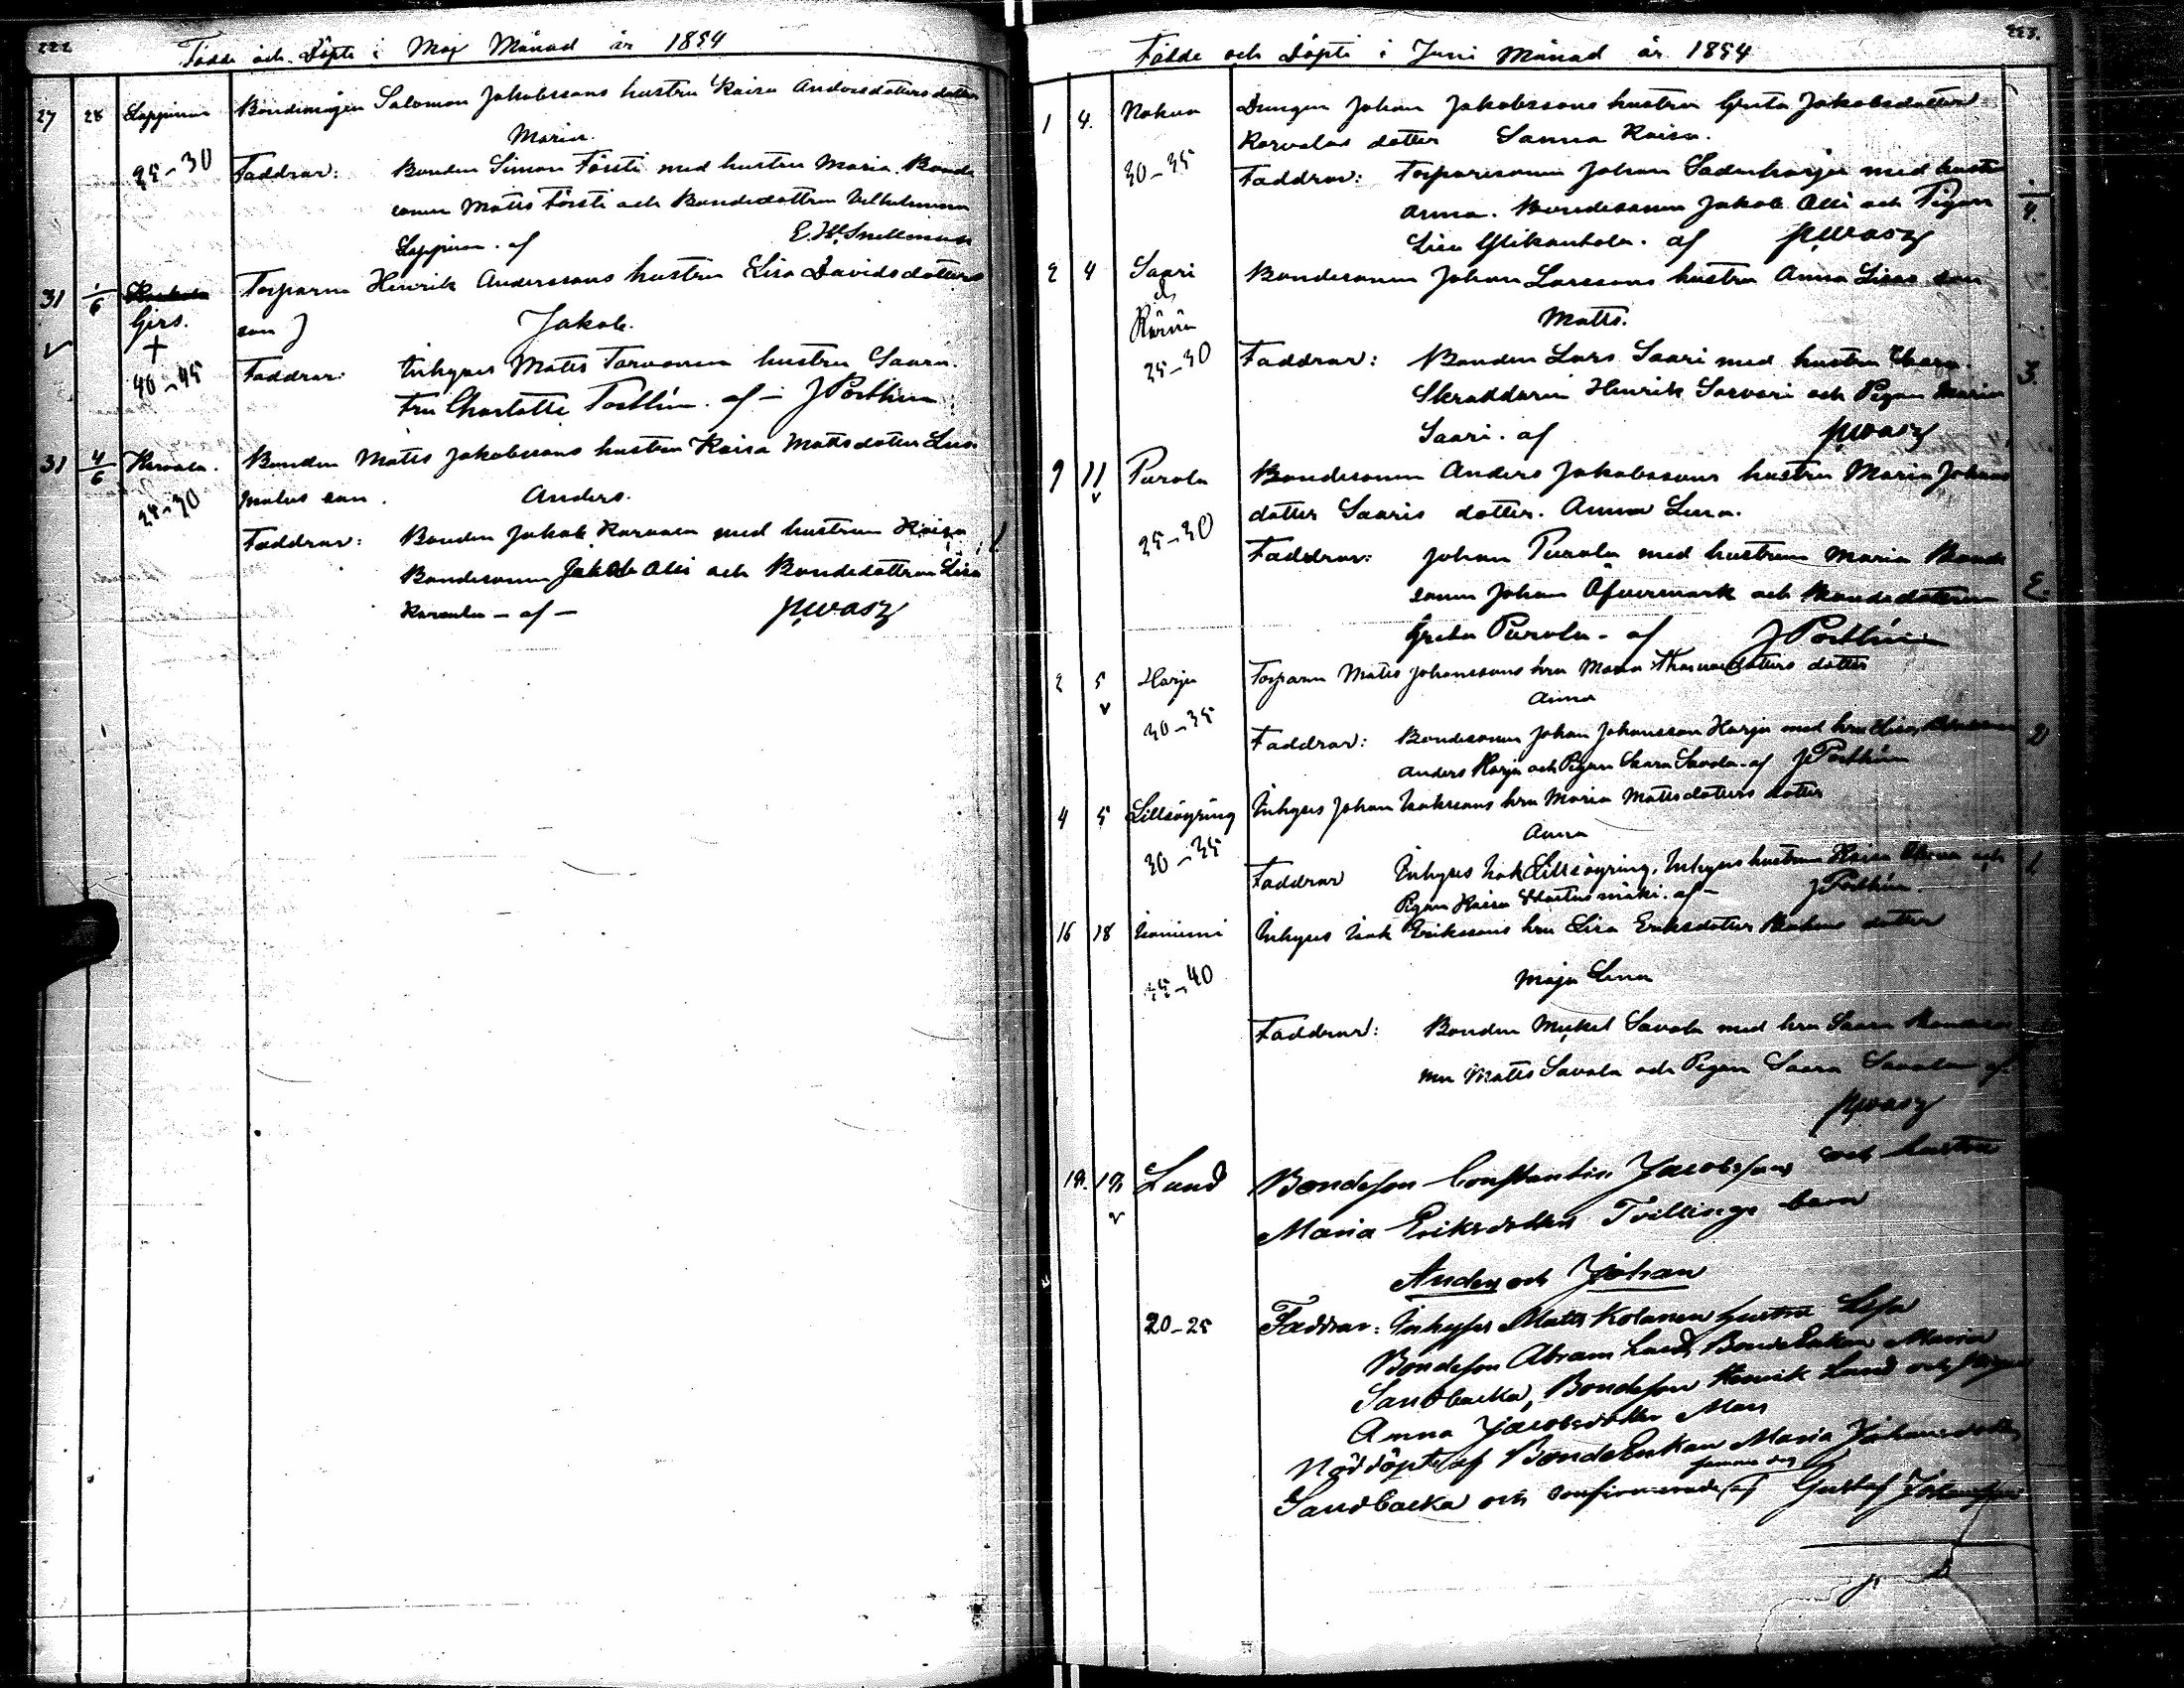 222
Födde och Döpte i Maj Månad år 1854
27 28 Lappinen Bondemågen Salomon Jakobssons hustru Kaisa Andersdotters dotter
Maria.
25-30 Faddrar: Bonden Simon Försti med hustru Maria. Bonde
sonen Matts Försti och Bondedottren Wilhelmina
Lappinen. af E. W. Snellman
31 1/6 Girs. Torparen Henrik Anderssons hustru Lisa Davidsdotters
son Jakob.
40-45 Faddrar: Inhyses Matts Tarvonen hustru Saara.
Fru Charlotta Postlin. af - J Postlin
31 4/6 Karvala. Bonden Matts Jakobssons hustru Kaisa Mattsdotter
son. Anders.
25-30
Faddrar: Bonden Jakob Karvala med hustrun Kaisa
Bondesonen Jakob Alli och Bondedottren Lisa
Karvala - af -
223.
Födde och Döpte i Juni Månad år 1854
1 4. Drengen Johan Jakobssons hustru Greta Jakobsdotter
Karvalas dotter Sanna Kaisa.
30-35 Faddrar: Torparesonen Johan med hustru
Anna. Bondesonen Jakob Alli och Pigan
Lisa af
4.
2 4 Saari Bondesonen Johan Larssons hustru Anna Lisas son
Matts.
25-30 Faddrar: Bonden Lars Saari med hustru
Skraddaren Henrik Sarvari och Pigan Maria
Saari. af
3.
9 11 Purola Bondesonen Anders Jakobssons hustru Maria Johans
dotter Saaris dotter. Anna Lena.
25-30
Faddrar: Johan Purola med hustrun Maria Bonde
sonen Johan Öfvermark och Bondedottren
Greta Purola - af J Postlin
2 5 Harju Torparen Matts Johanssons hru Maria Thomasdotters dotter
Anna
30-35
Faddrar: Bondesonen Johan Johansson Harju med hru Lisa,
Anders Harju och Pigan Saara Savola. af J Postlin
2
4 5 Lillsöyring Inhyses Johan Isakssons hru Maria Mattsdotters dotter
Anna
30-35
Faddrar Inhyses Isak Lillsöyring, Inhyses hustrun Kaisa och
Pigan Kaisa af - J Postlin.
16 18 Isoniemi Inhyses Isak Erikssons hru Lisa Eriksdotter dotter
Maja Lena
35-40
Faddrar: Bonden Mickel Savola med hru Saara Bondeso
nen Matts Savola och Pigan Saara Savola af
Lund Bondeson Constantin Jacobssons och hustru
Maria Eriksdotters Tvillinge barn
Anders och Johan
20-25 Faddrar: Inhyses Matts Kolanen hustru Lisa
Bondeson Abram Lund, BondeEnkan Maria
Sandbacka, Bondeson Henrik Lund och Pigan
Anna Jacobsdotter Mars
Nöddöpte af BondeEnkan Maria Johansdotter
Sandbacka och Confirmerade samma dag af Gustaf Johansson